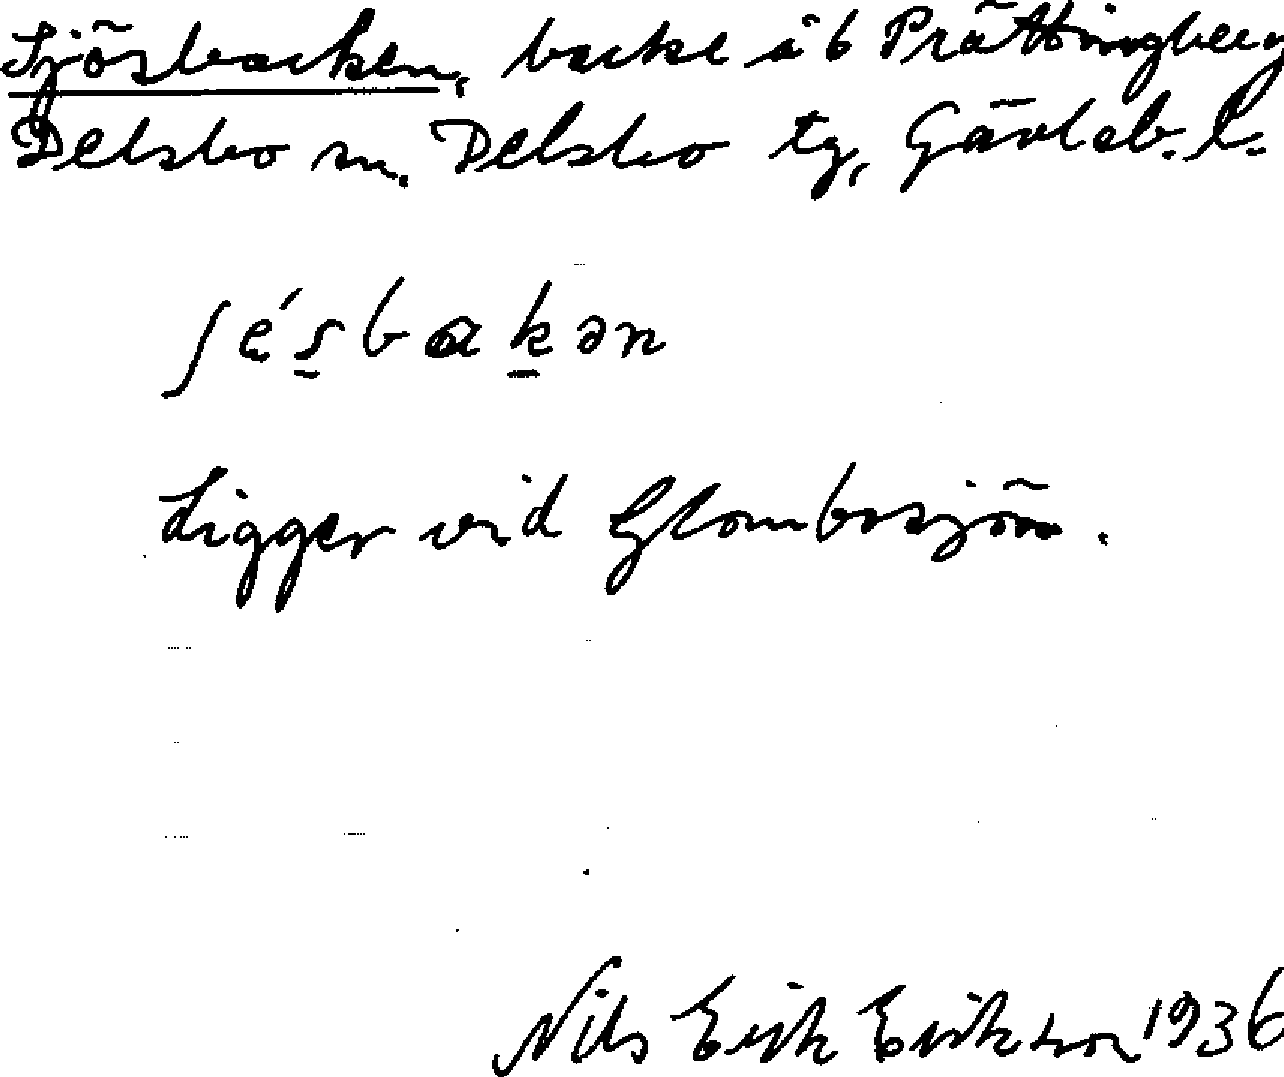 Sjösbacken, backe å b Prättingberg
Delsbo sn. Delsbo tg, Gävleb. l.
ʃés̱baḵən
Ligger vid Glombosjön.
Nils Erik Eriksson 1936